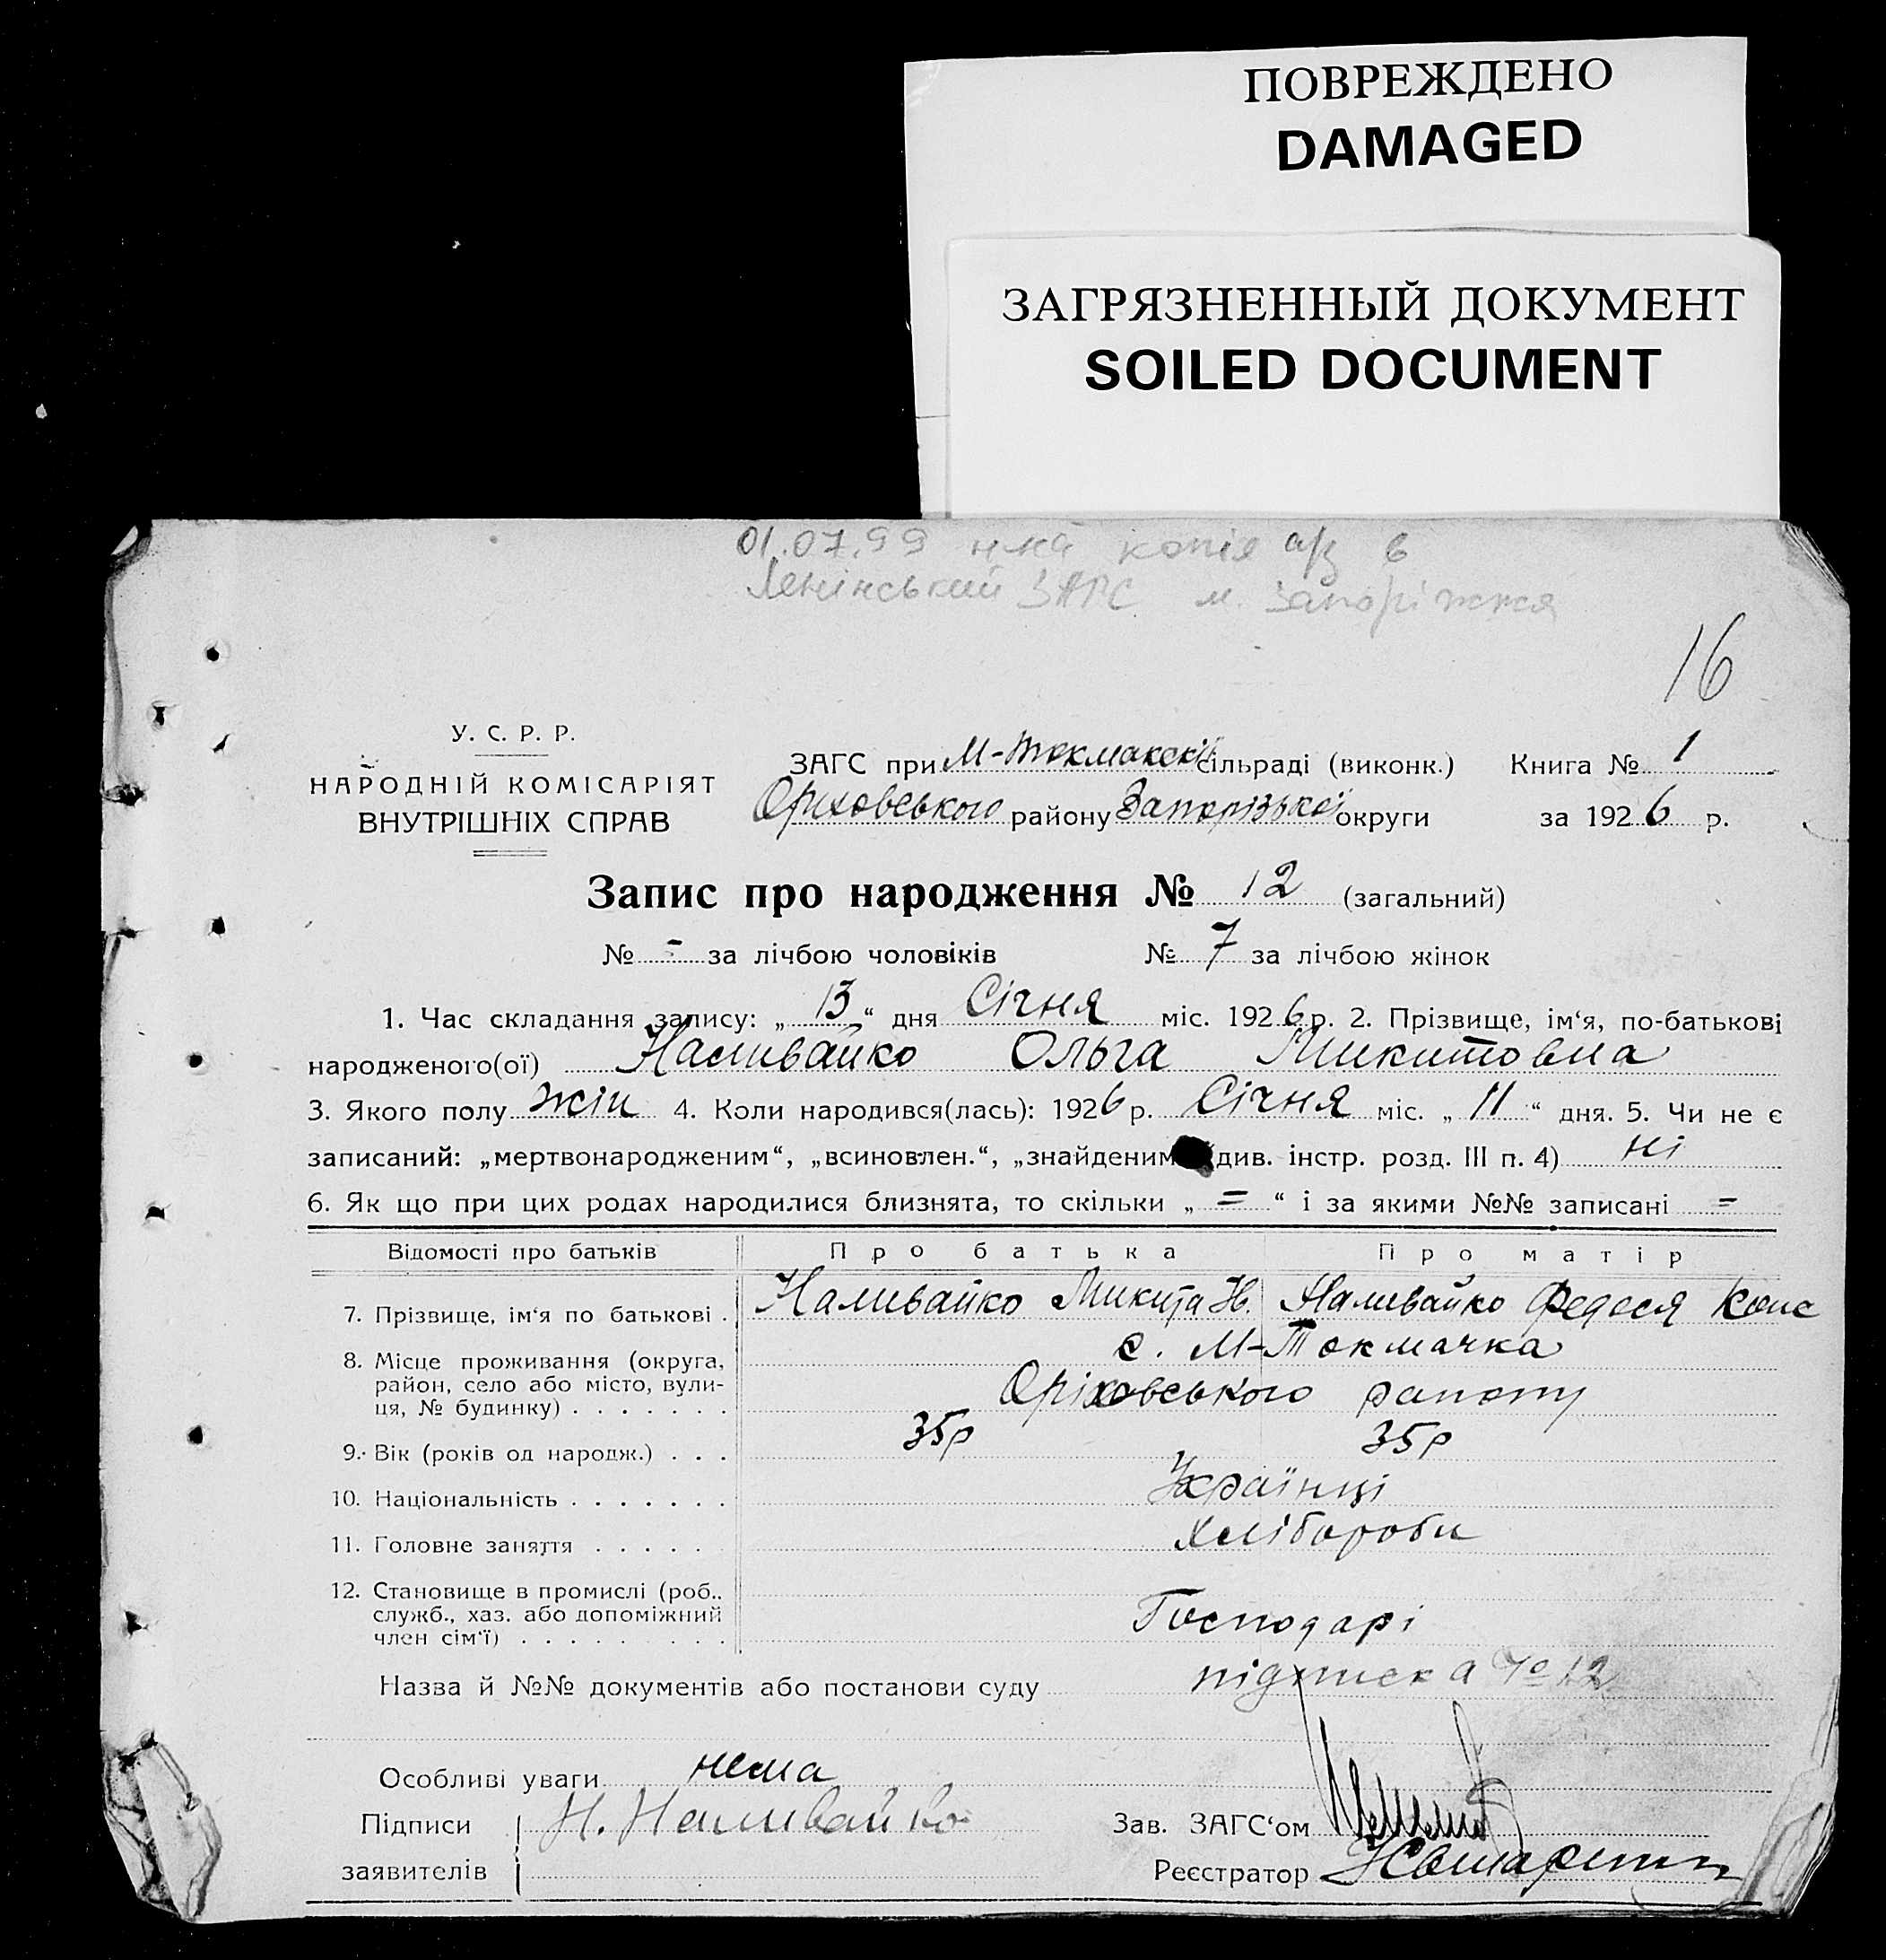 ПОВРЕЖДЕНО
DAMAGED
ЗАГРЯЗНЕННЫЙ ДОКУМЕНТ
SOILED DOCUMENT
01.07.99 копія а/з в
Ленінський ЗАГС м. Запоріжжя
16
У. С. Р. Р.
НАРОДНІЙ КОМІСАРІЯТ
ВНУТРІШНІХ СПРАВ
ЗАГС при М-Токмакскі сільраді (виконк.) Книга № 1
Оріховського району Запорізької округи за 1926 р.
Запис про народження № 12 (загальний)
№ - за лічбою чоловіків № 7 за лічбою жінок
1. Час складання запису: „ 13 “ дня Січня міс. 1926 р. 2. Прізвище, ім‘я, по-батькові
народженого(ої) Наливайко Ольга Микитовна
3. Якого полу жін 4. Коли народився(лась): 1926 р. Січня міс. „ 11 “ дня. 5. Чи не є
записаний: „мертвонародженим“, „всиновлен.“, „знайденим (див. інстр. розд. III п. 4) ні
6. Як що при цих родах народилися близнята, то скільки „ = “ і за якими №№ записані =
Відомості про батьків Про батька Про матір
7. Прізвище, ім‘я по батькові . Наливайко Микита Н. Наливайко Федося Конс
8. Місце проживання (округа, с. М-Токмачка
район, село або місто, вули-
ця, № будинку) . . . . . . . Оріховського району
9. Вік (років од народж.) . . . 35р 35р
10. Національність . . . . . . . Українці
11. Головне заняття . . . . . Хлібороби
12. Становище в промислі (роб.,
служб., хаз. або допоміжний Господарі
член сім‘ї) . . . . . . . . .
Назва й №№ документів або постанови суду підписка № 12
Особливі уваги нема
Підписи Н. Наливайко Зав. ЗАГС‘ом
заявителів Реєстратор